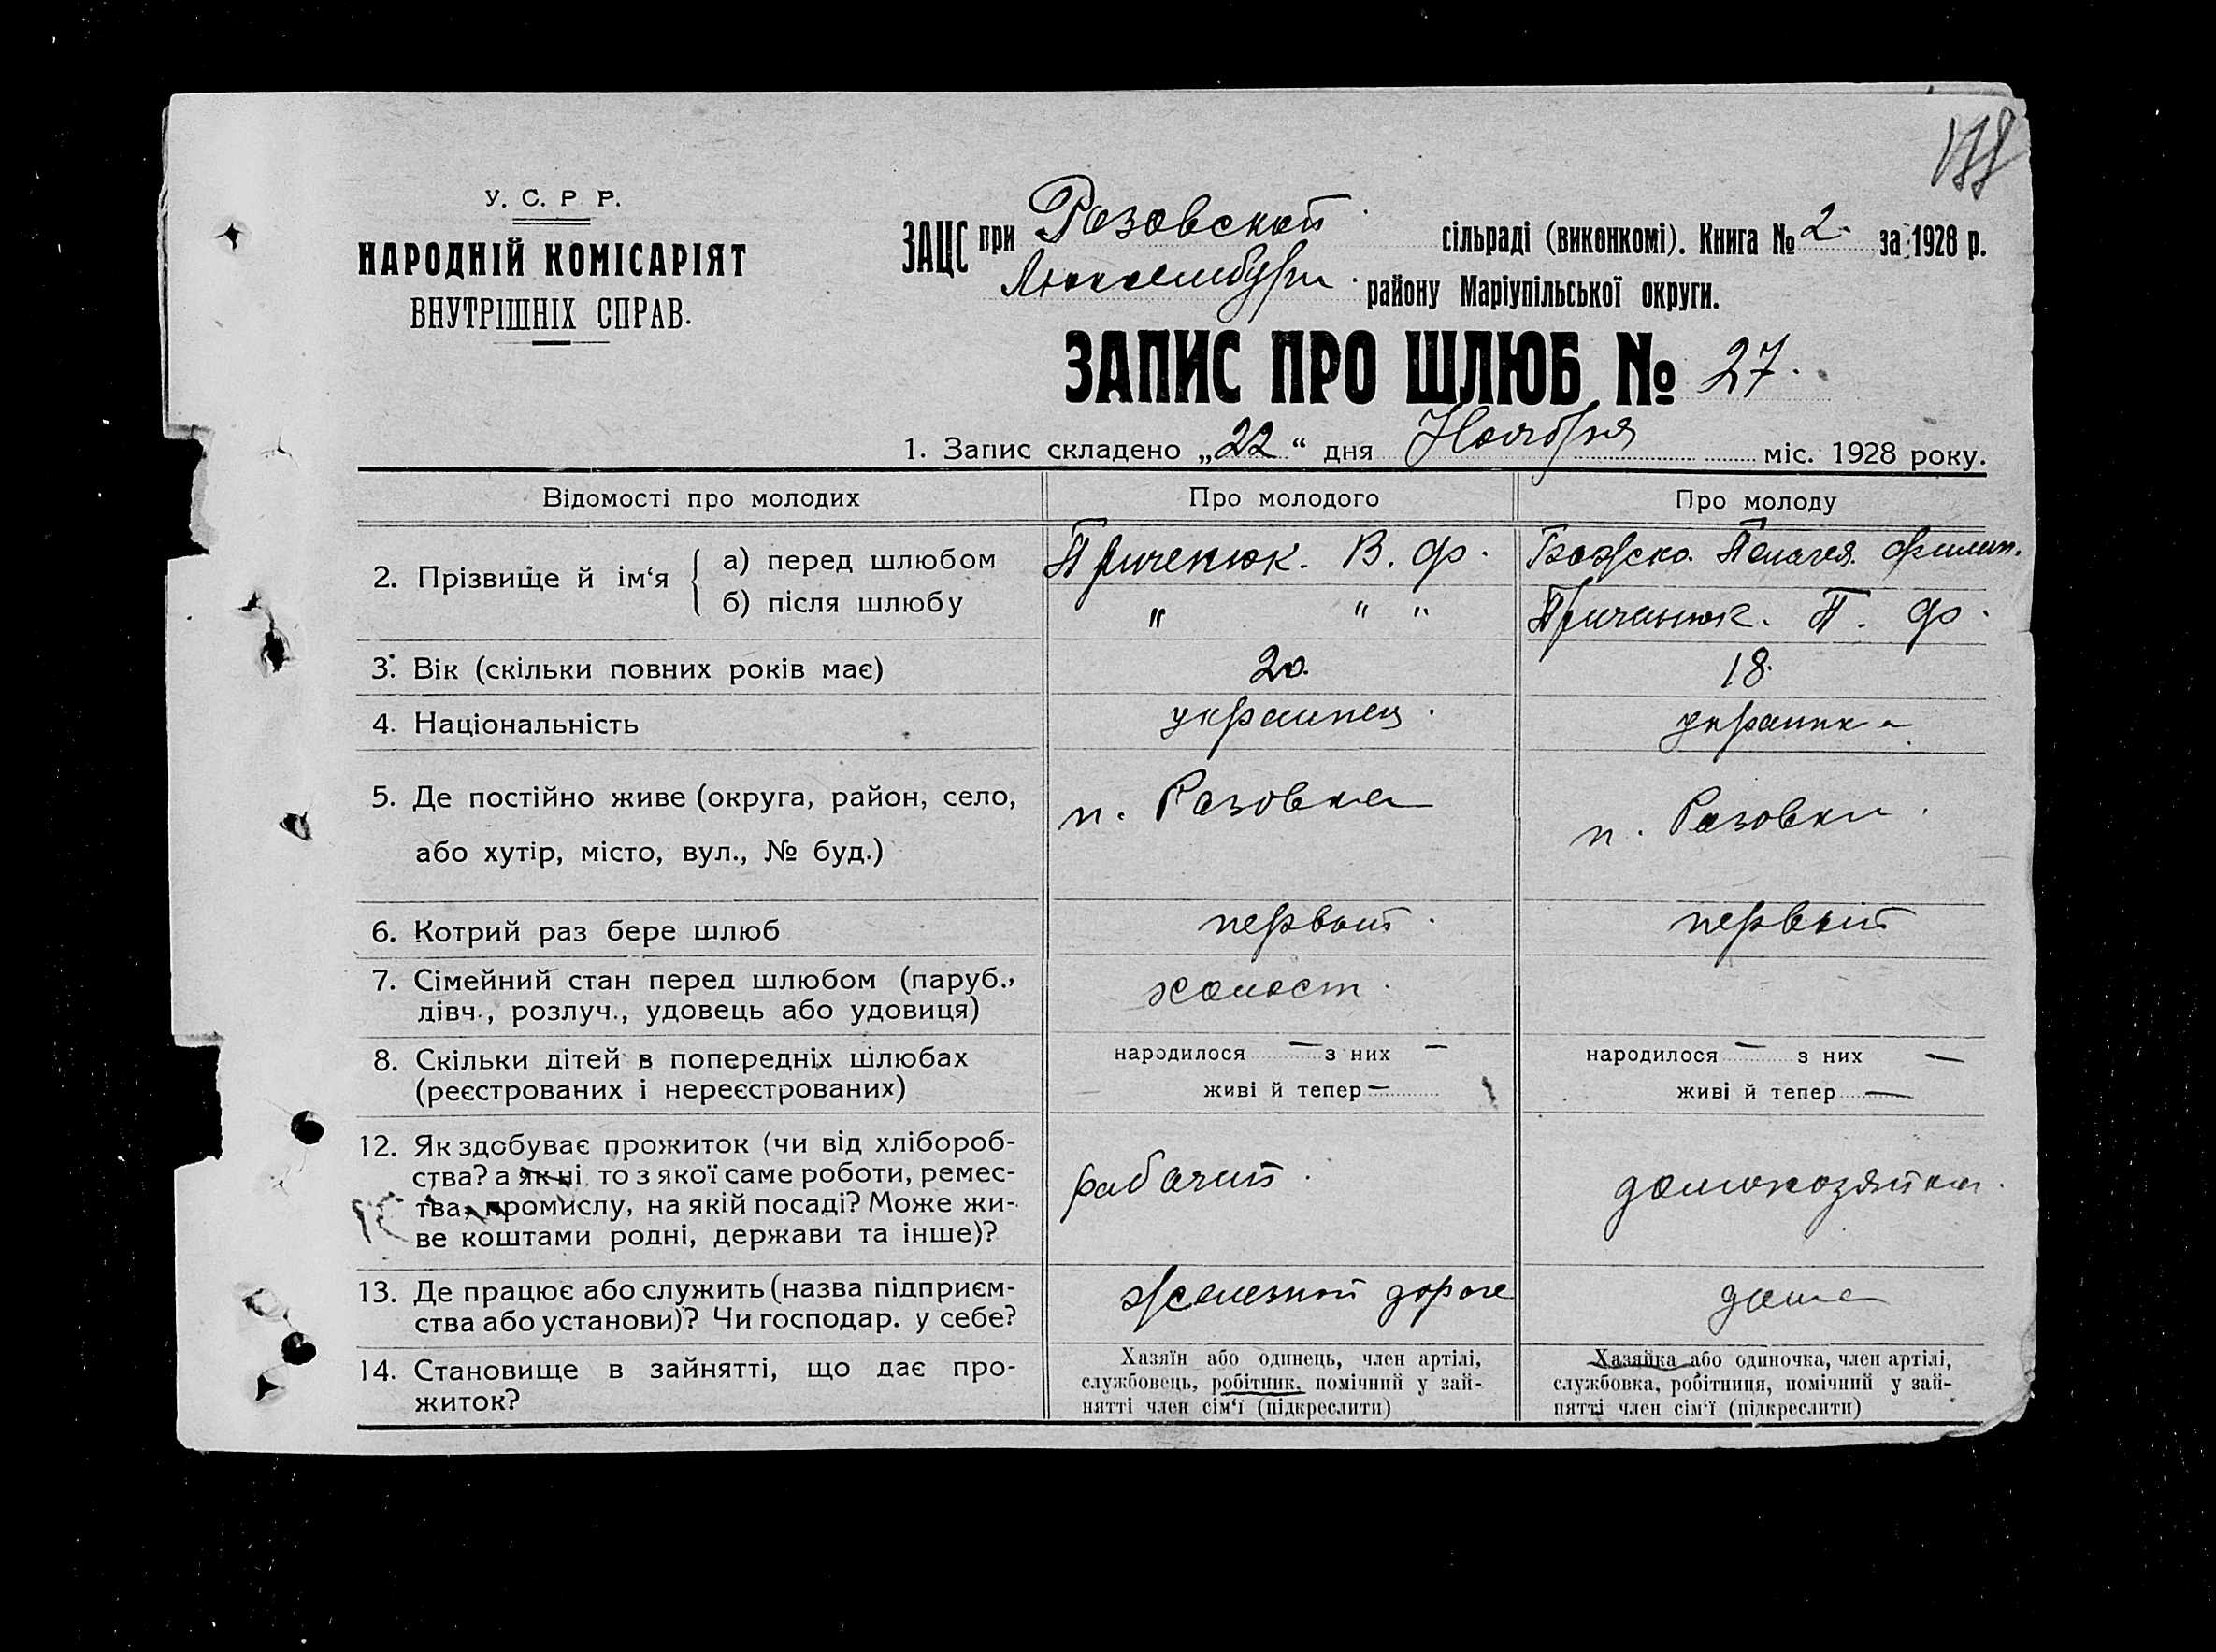 У. С. Р Р.
НАРОДНІЙ КОМІСАРІЯТ
ВНУТРІШНІХ СПРАВ.
ЗАЦС при Розовской сільраді (виконкомі). Книга № 2 за 1928 р.
Люксембург. району Маріупільської округи.
ЗАПИС ПРО ШЛЮБ № 27.
1. Запис складено „22“ дня Ноября міс. 1928 року.
Відомості про молодих Про молодого Про молоду
2. Прізвище й ім‘я
а) перед шлюбом Приченюк. В. Ф. Пелагея. Филип.
б) після шлюбу " " " Приченюк. П. Ф.
3. Вік (скільки повних років має) 20. 18.
4. Національність украинец. украинка
5. Де постійно живе (округа, район, село, або хутір, місто, вул., № буд.)
п. Розовка п. Розовка.
6. Котрий раз бере шлюб первый. первый
7. Сімейний стан перед шлюбом (паруб., дівч., розлуч., удовець або удовиця)
холост.
8. Скільки дітей в попередніх шлюбах (реєстрованих і нереєстрованих)
народилося — з них — живі й тепер —
народилося — з них — живі й тепер —
12. Як здобуває прожиток (чи від хлібороб-
ства? а як ні, то з якої саме роботи, ремес-
тва, промислу, на якій посаді? Може жи-
ве коштами родні, держави та інше)?
рабочий. домохозяйка.
13. Де працює або служить (назва підприєм-
ства або установи)? Чи господар. у себе?
железной дороге дома
14. Становище в зайнятті, що дає про-
житок?
Хазяїн або одинець, член артілі,
службовець, робітник, помічний у зай-
нятті член сім‘ї (підкреслити)
Хазяйка або одиночка, член артілі,
службовка, робітниця, помічний у зай-
нятті член сім‘ї (підкреслити)